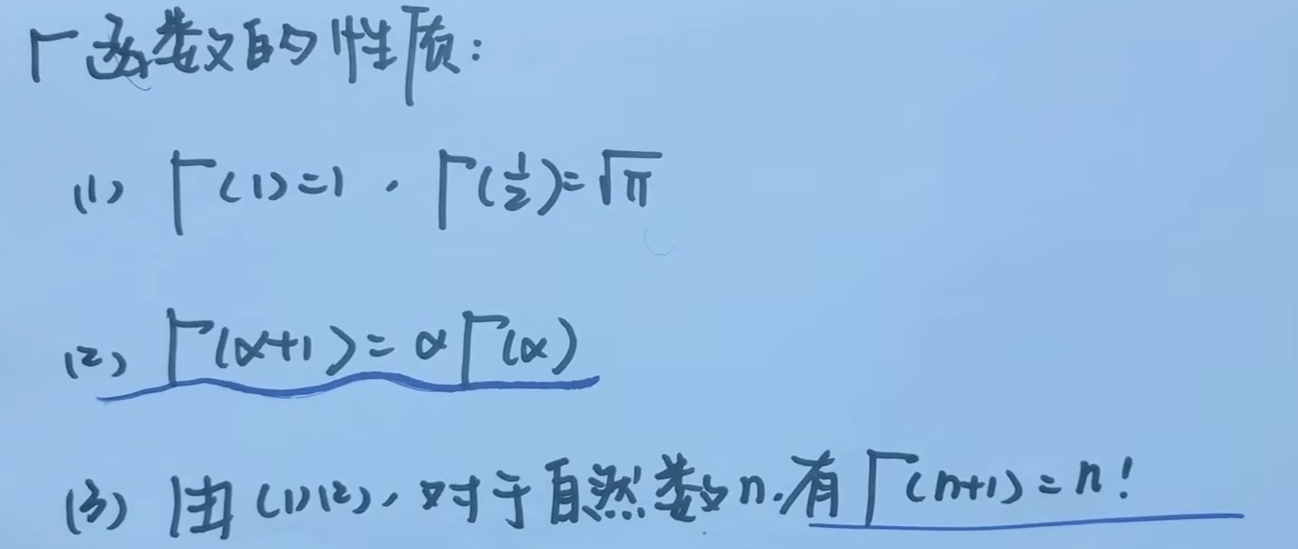 Γ函数的性质:
(1) Γ(1)=1, Γ(1/2)=√π
(2) Γ(α+1)=αΓ(α)
(3) 由(1)(2),对于自然数n,有Γ(n+1)=n!